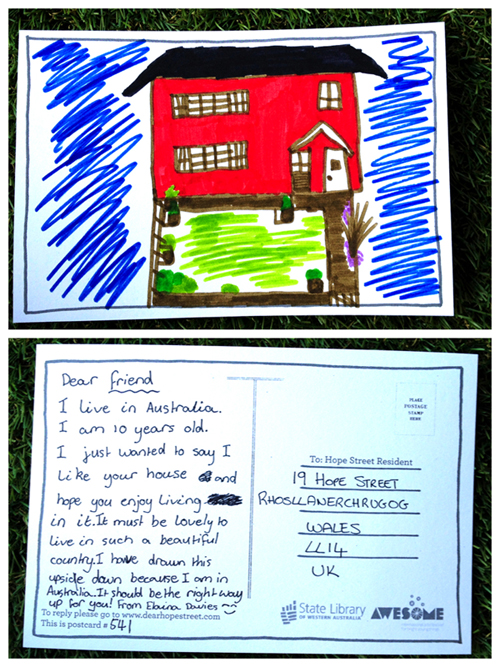 Dear friend
I live in Australia.
I am 10 years old.
I just wanted to say I
like your house and
hope you enjoy living
in it. It must be lovely to
live in such a beautiful
country. I have drawn this
upside down because I am in
Australia. It should be the right way
up for you! From Elaina Davies
To reply please go to www.dearhopestreet.com
This is postcard # 541
PLACE
POSTAGE
STAMP
HERE
To: Hope Street Resident
19 HOPE STREET
RHOSLLANERCHRUGOG
WALES
LL14
UK
State Library
OF WESTERN AUSTRALIA
AWESOME